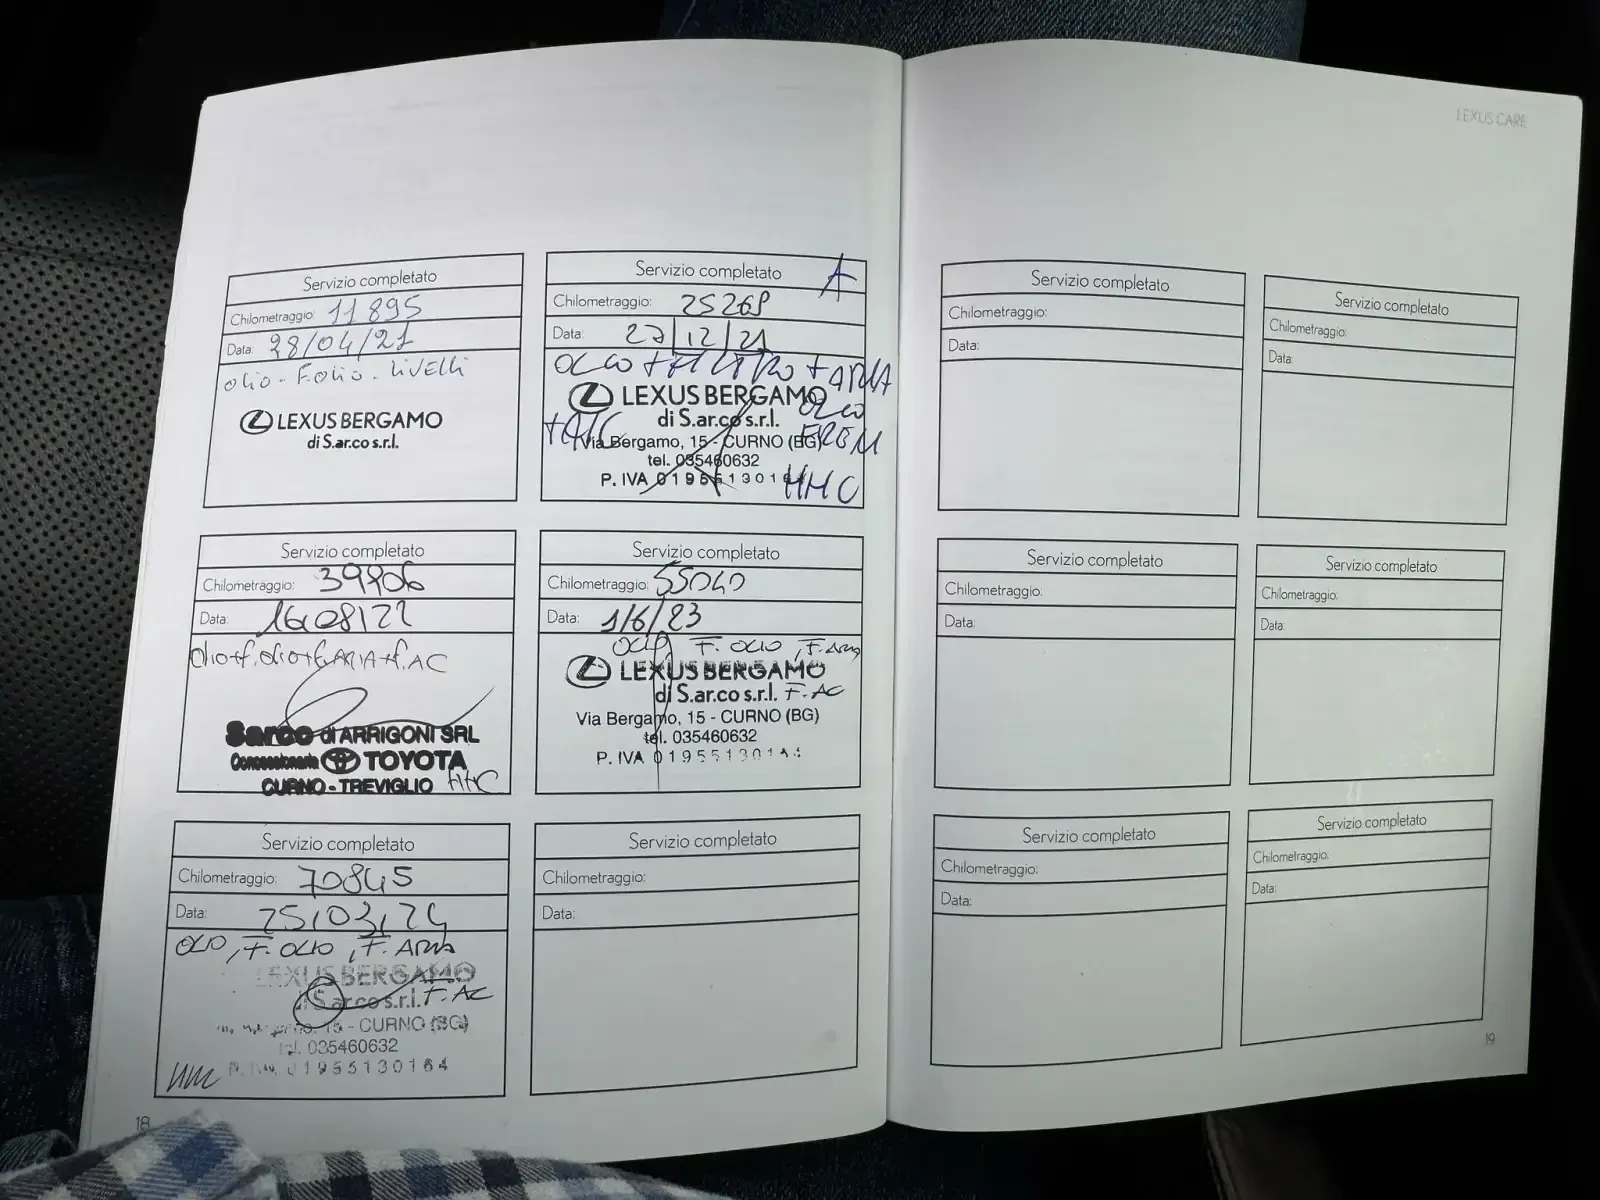 LEXUS CARE
Servizio completato
Chilometraggio: 11895
Data: 28/04/21
olio - F.olio - LIVELLI
LEXUS BERGAMO
di S.ar.co s.r.l.
Servizio completato
A
Chilometraggio: 25269
Data: 27/12/21
OLIO + FILTRO + ARIA
LEXUS BERGAMO
di S.ar.co s.r.l.
+ A/C Via Bergamo, 15 - CURNO (BG)
tel. 035460632
P. IVA 01955130164
HHC
Servizio completato
Chilometraggio: 39906
Data: 16/08/22
olio+f.olio+f.ARIA+f.AC
Sarco di ARRIGONI SRL
Concessionaria TOYOTA
CURNO - TREVIGLIO HHC
Servizio completato
Chilometraggio: 55040
Data: 1/6/23
OLIO F. OLIO, F. ARIA
LEXUS BERGAMO
di S.ar.co s.r.l. F. AC
Via Bergamo, 15 - CURNO (BG)
tel. 035460632
P. IVA 01955130164
Servizio completato
Chilometraggio: 70845
Data: 25/03/24
OLIO, F. OLIO, F. ARIA
LEXUS BERGAMO
di S.ar.co s.r.l. F. AC
15 - CURNO (BG)
tel. 035460632
P. IVA 01955130164
Servizio completato
Chilometraggio:
Data:
18
Servizio completato
Chilometraggio:
Data:
Servizio completato
Chilometraggio:
Data:
Servizio completato
Chilometraggio:
Data:
Servizio completato
Chilometraggio:
Data:
Servizio completato
Chilometraggio:
Data:
Servizio completato
Chilometraggio:
Data:
19